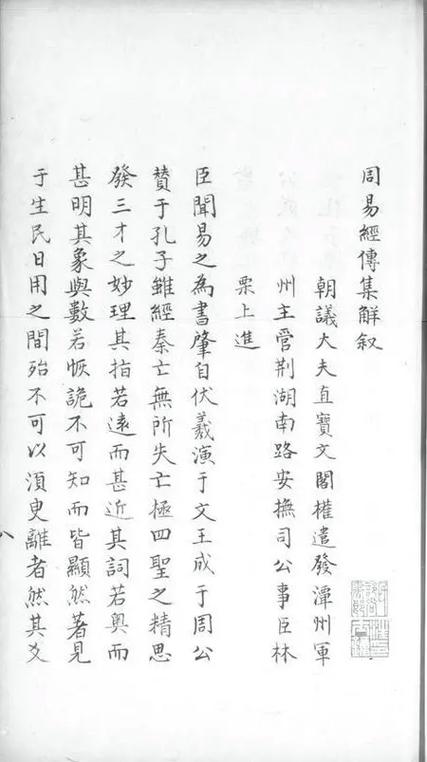 周易經傳集解叙
朝議大夫直寶文閣權遣發潭州軍
州主管荆湖南路安撫司公事臣林
栗上進
臣聞易之為書肇自伏羲演于文王成于周公
賛于孔子雖經秦亡無所失亡極四聖之精思
發三才之妙理其指若遠而甚近其詞若奧而
甚明其象與數若恢詭不可知而皆顯然著見
于生民日用之間殆不可以湏臾離者然其爻